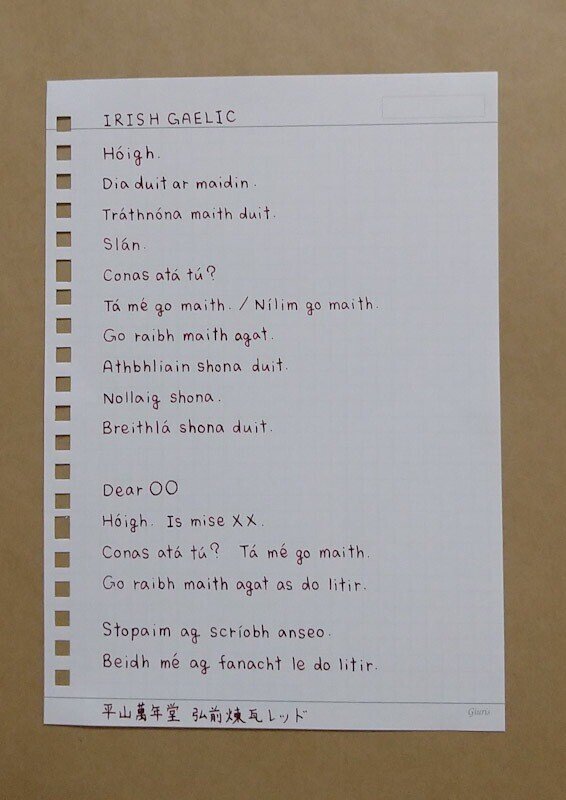 IRISH GAELIC
Hóigh.
Dia duit ar maidin.
Tráthnóna maith duit.
Slán.
Conas atá tú?
Tá mé go maith. / Nílim go maith.
Go raibh maith agat.
Athbhliain shona duit.
Nollaig shona.
Breithlá shona duit.
Dear ○○
Hóigh. Is mise ××.
Conas atá tú? Tá mé go maith.
Go raibh maith agat as do litir.
Stopaim ag scríobh anseo.
Beidh mé ag fanacht le do litir.
平山萬年堂 弘前煉瓦レッド